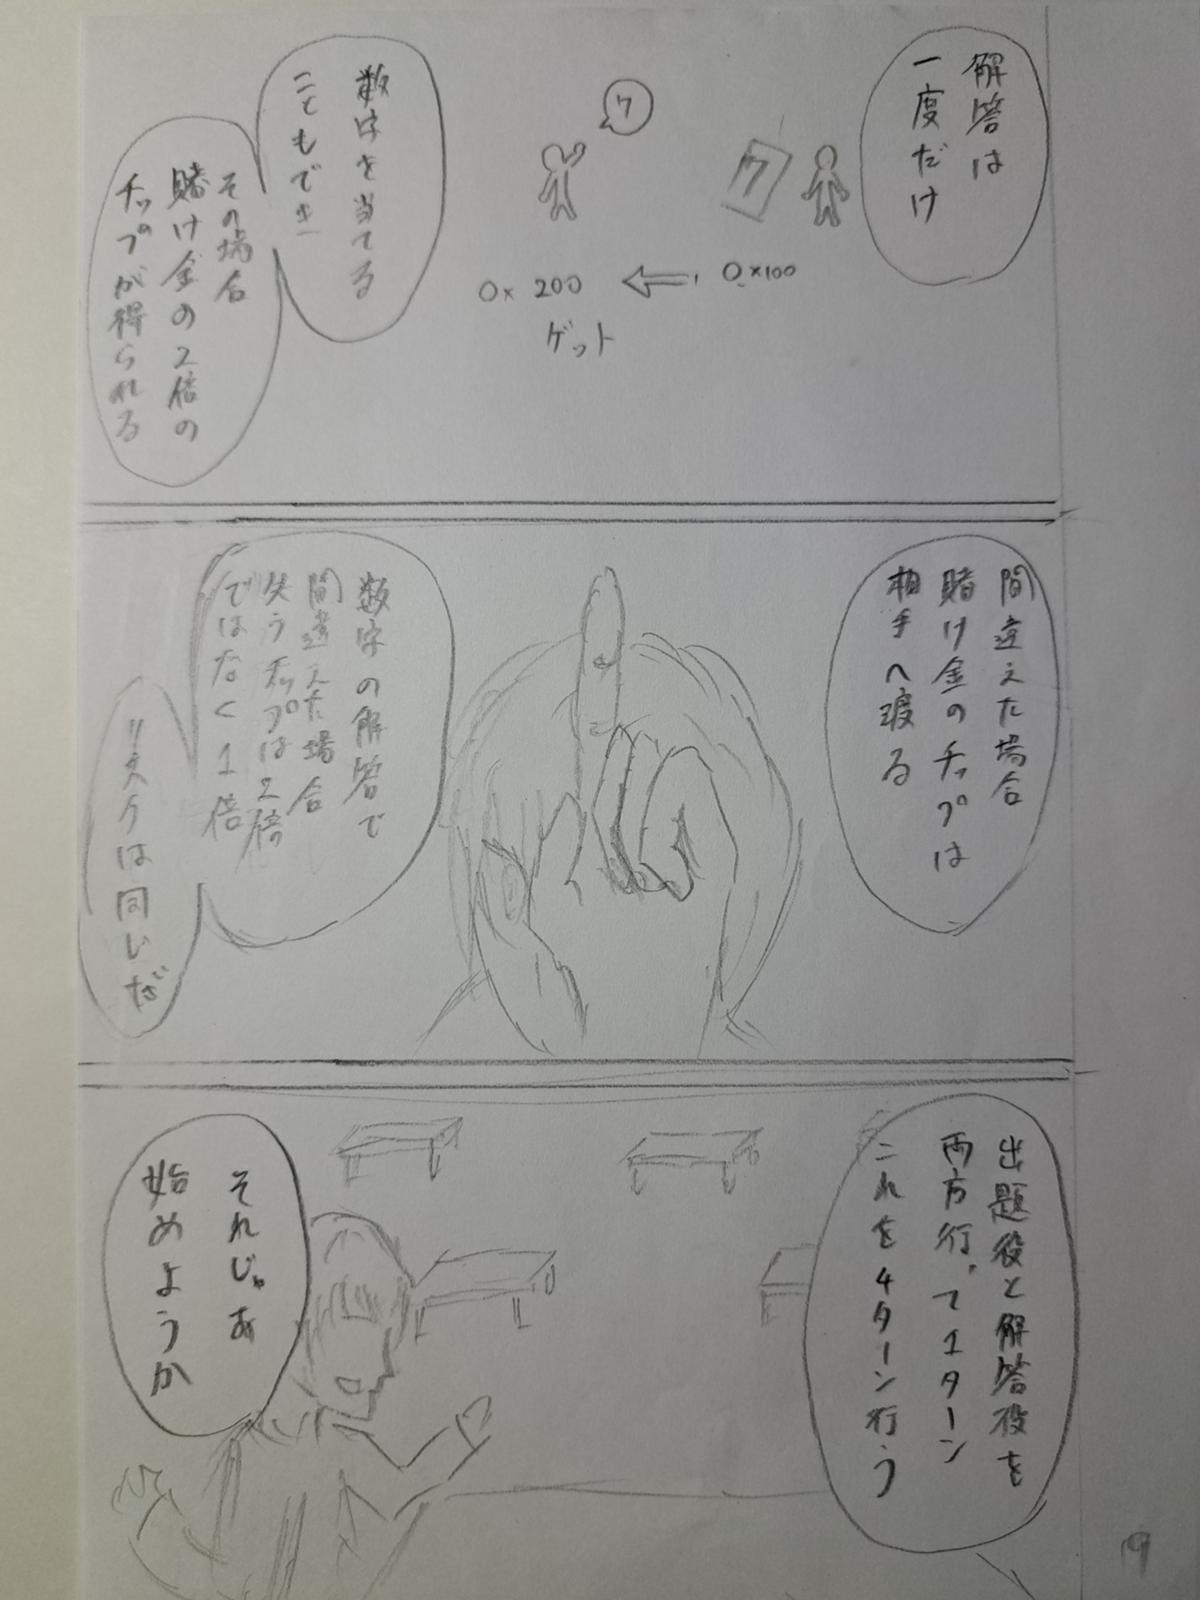 解答は
一度だけ
7
7
○×100
○×200
ゲット
数字を当てる
こともでき
その場合
賭け金の2倍の
チップが得られる
間違えた場合
賭け金のチップは
相手へ渡る
数字の解答で
間違えた場合
失うチップは2倍
ではなく1倍
リスクは同じだ
出題役と解答役を
両方行って1ターン
これを4ターン行う
それじゃあ
始めようか
19